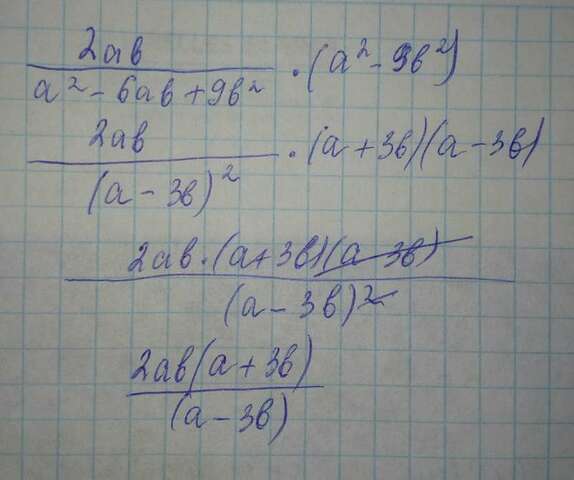 2ab
/ a² - 6ab + 9b² · (a² - 9b²)
2ab
/ (a - 3b)² · (a + 3b)(a - 3b)
2ab · (a + 3b)(a - 3b)
/ (a - 3b)²
2ab(a + 3b)
/ (a - 3b)